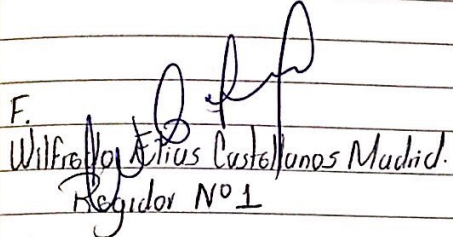 F.
Wilfredo Elius Castellanos Madrid.
Regidor Nº 1